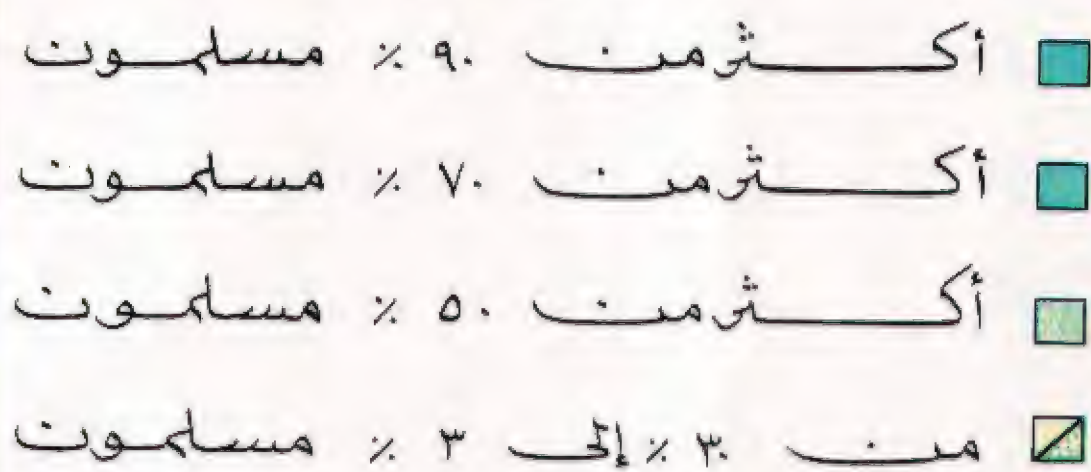 أكثر من ٩٠ ٪ مسلمون
أكثر من ٧٠ ٪ مسلمون
أكثر من ٥٠ ٪ مسلمون
من ٣٠ ٪ إلى ٣ ٪ مسلمون